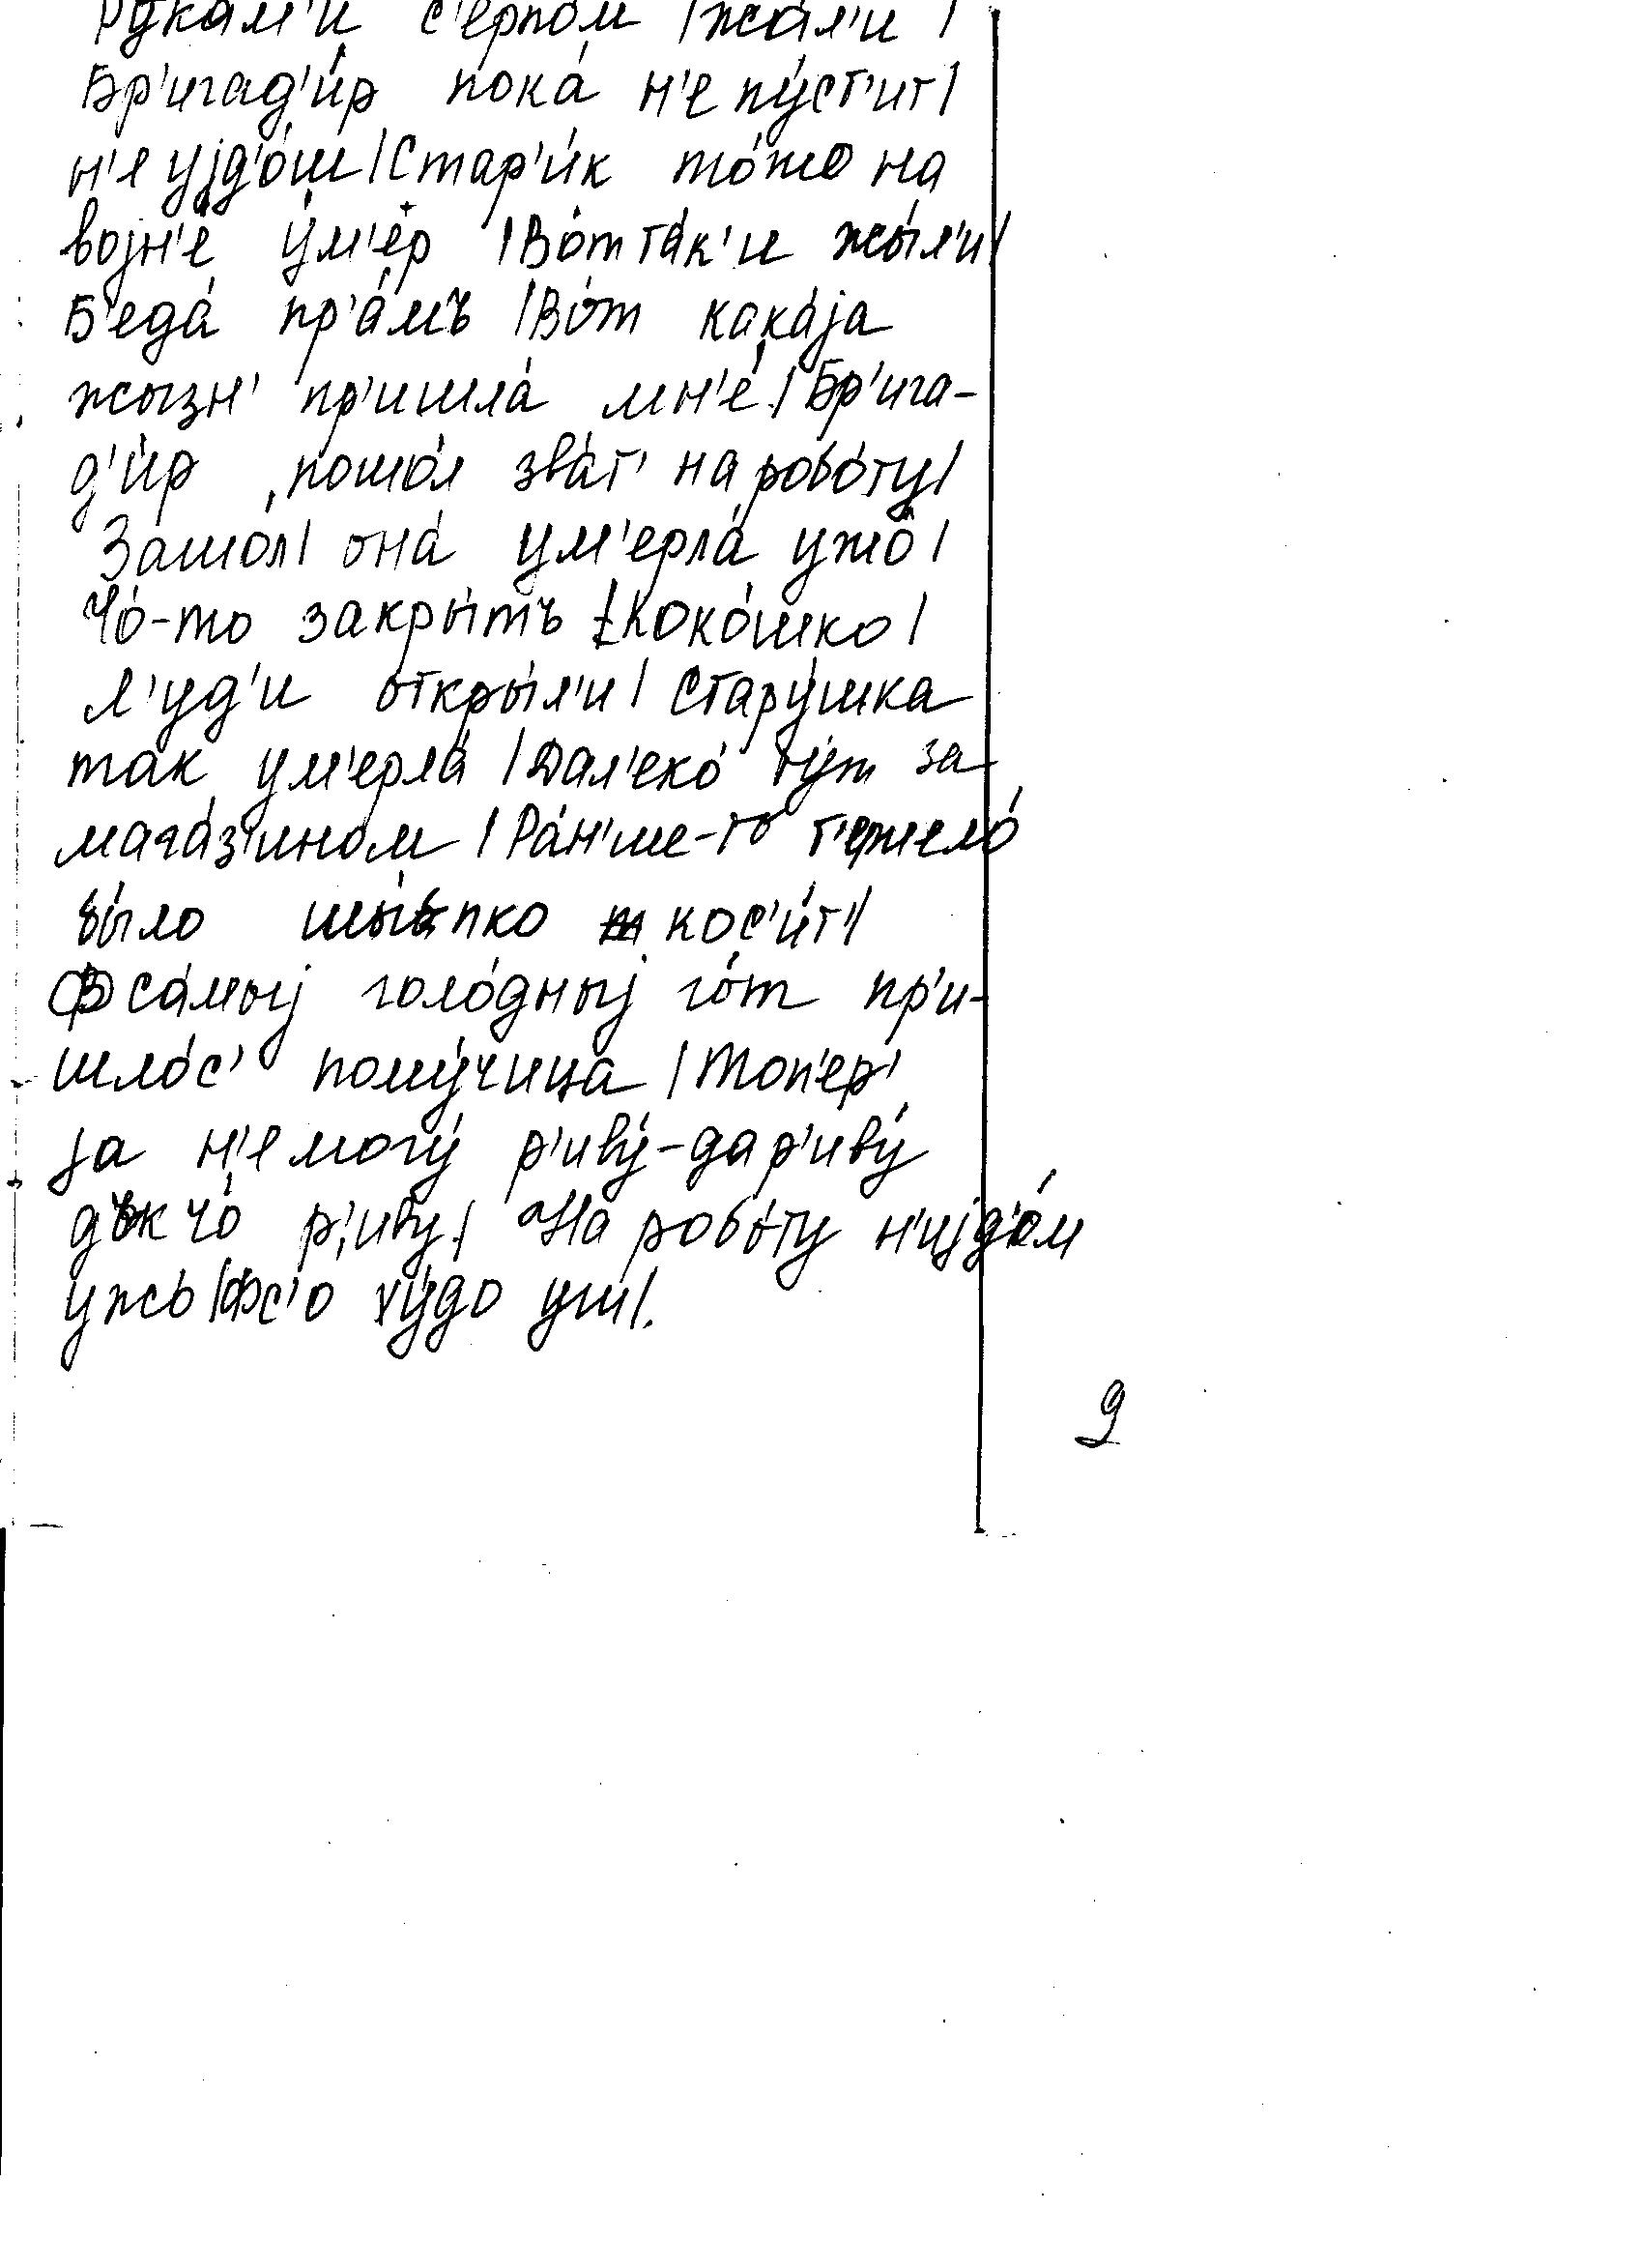 рукам'и с'ерпом |жал'и |
Бр'игад'и́р пока́ н'е пу́ст'ит|
н'е уjд'о́ш|Стар'и́к то́жо на
воjн'е́ у́м'ер |Во́т та́к'и жы́л'и|
Б'еда́ пр'а́мъ |Во́т кака́jа
жызн' пр'ишла́ мн'е́.|Бр'ига-
д'и́р пошо́л зва́т' на робо́ту|
Зашо́л| она́ ум'ерла́ ужо́|
Чо́-то закры́тъ око́шко|
Л'уд'и откры́л'и| Стару́шка
так ум'ерла́ |Дал'еко́ ту́т за
магаз'ином |Ра́н'ше-то т'ежело́
бы́ло шы́пко кос'и́т'|
Ф са́мыj голо́дныj го́т пр'и-
шло́с' пому́чица |Топ'ер'
jа н'е могу́ р'иву́-да р'иву́
дък чо́ р'иву́| На робо́ту н'иjд'о́м
ужъ|Фс'о ху́до уш|.
9